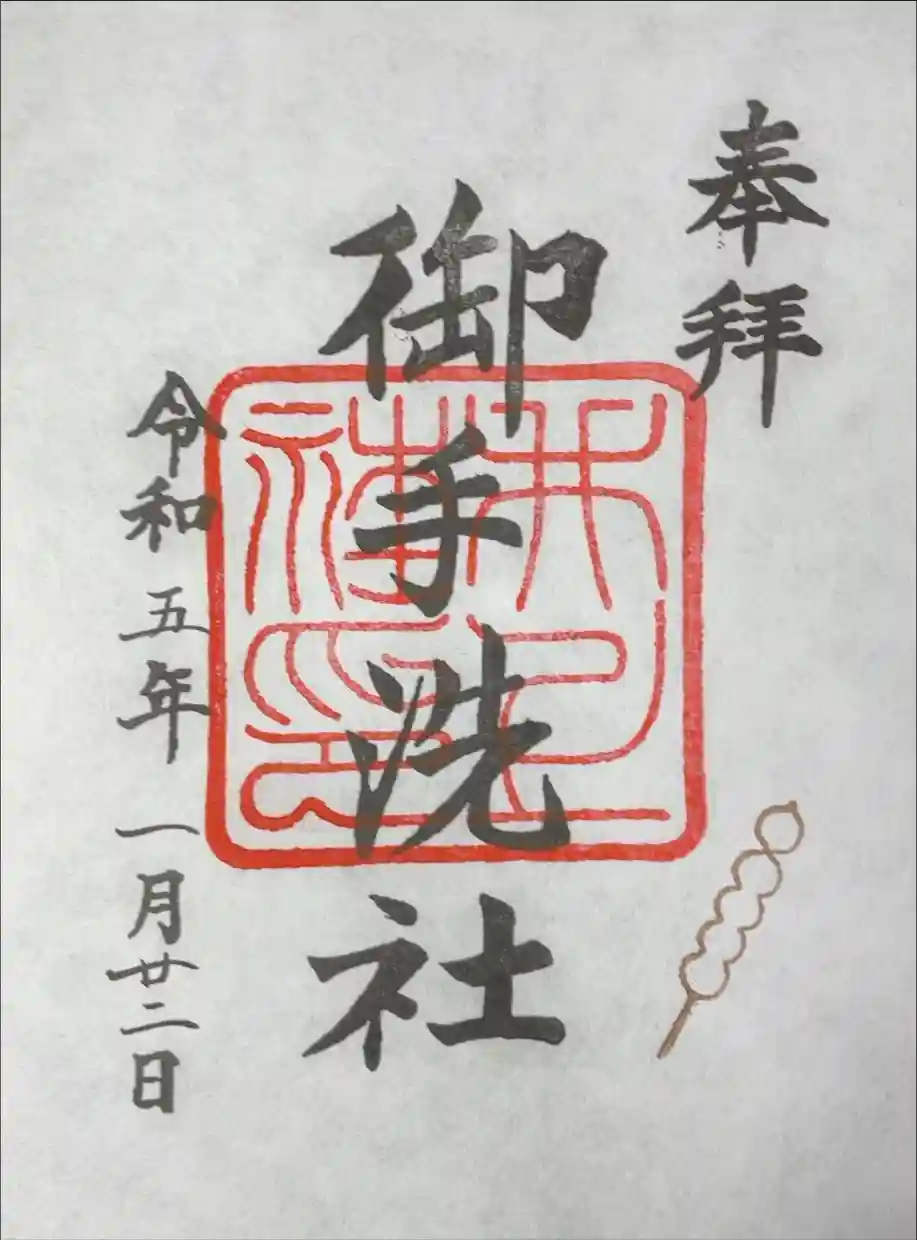 奉拝
御手洗社
令和五年一月廿二日